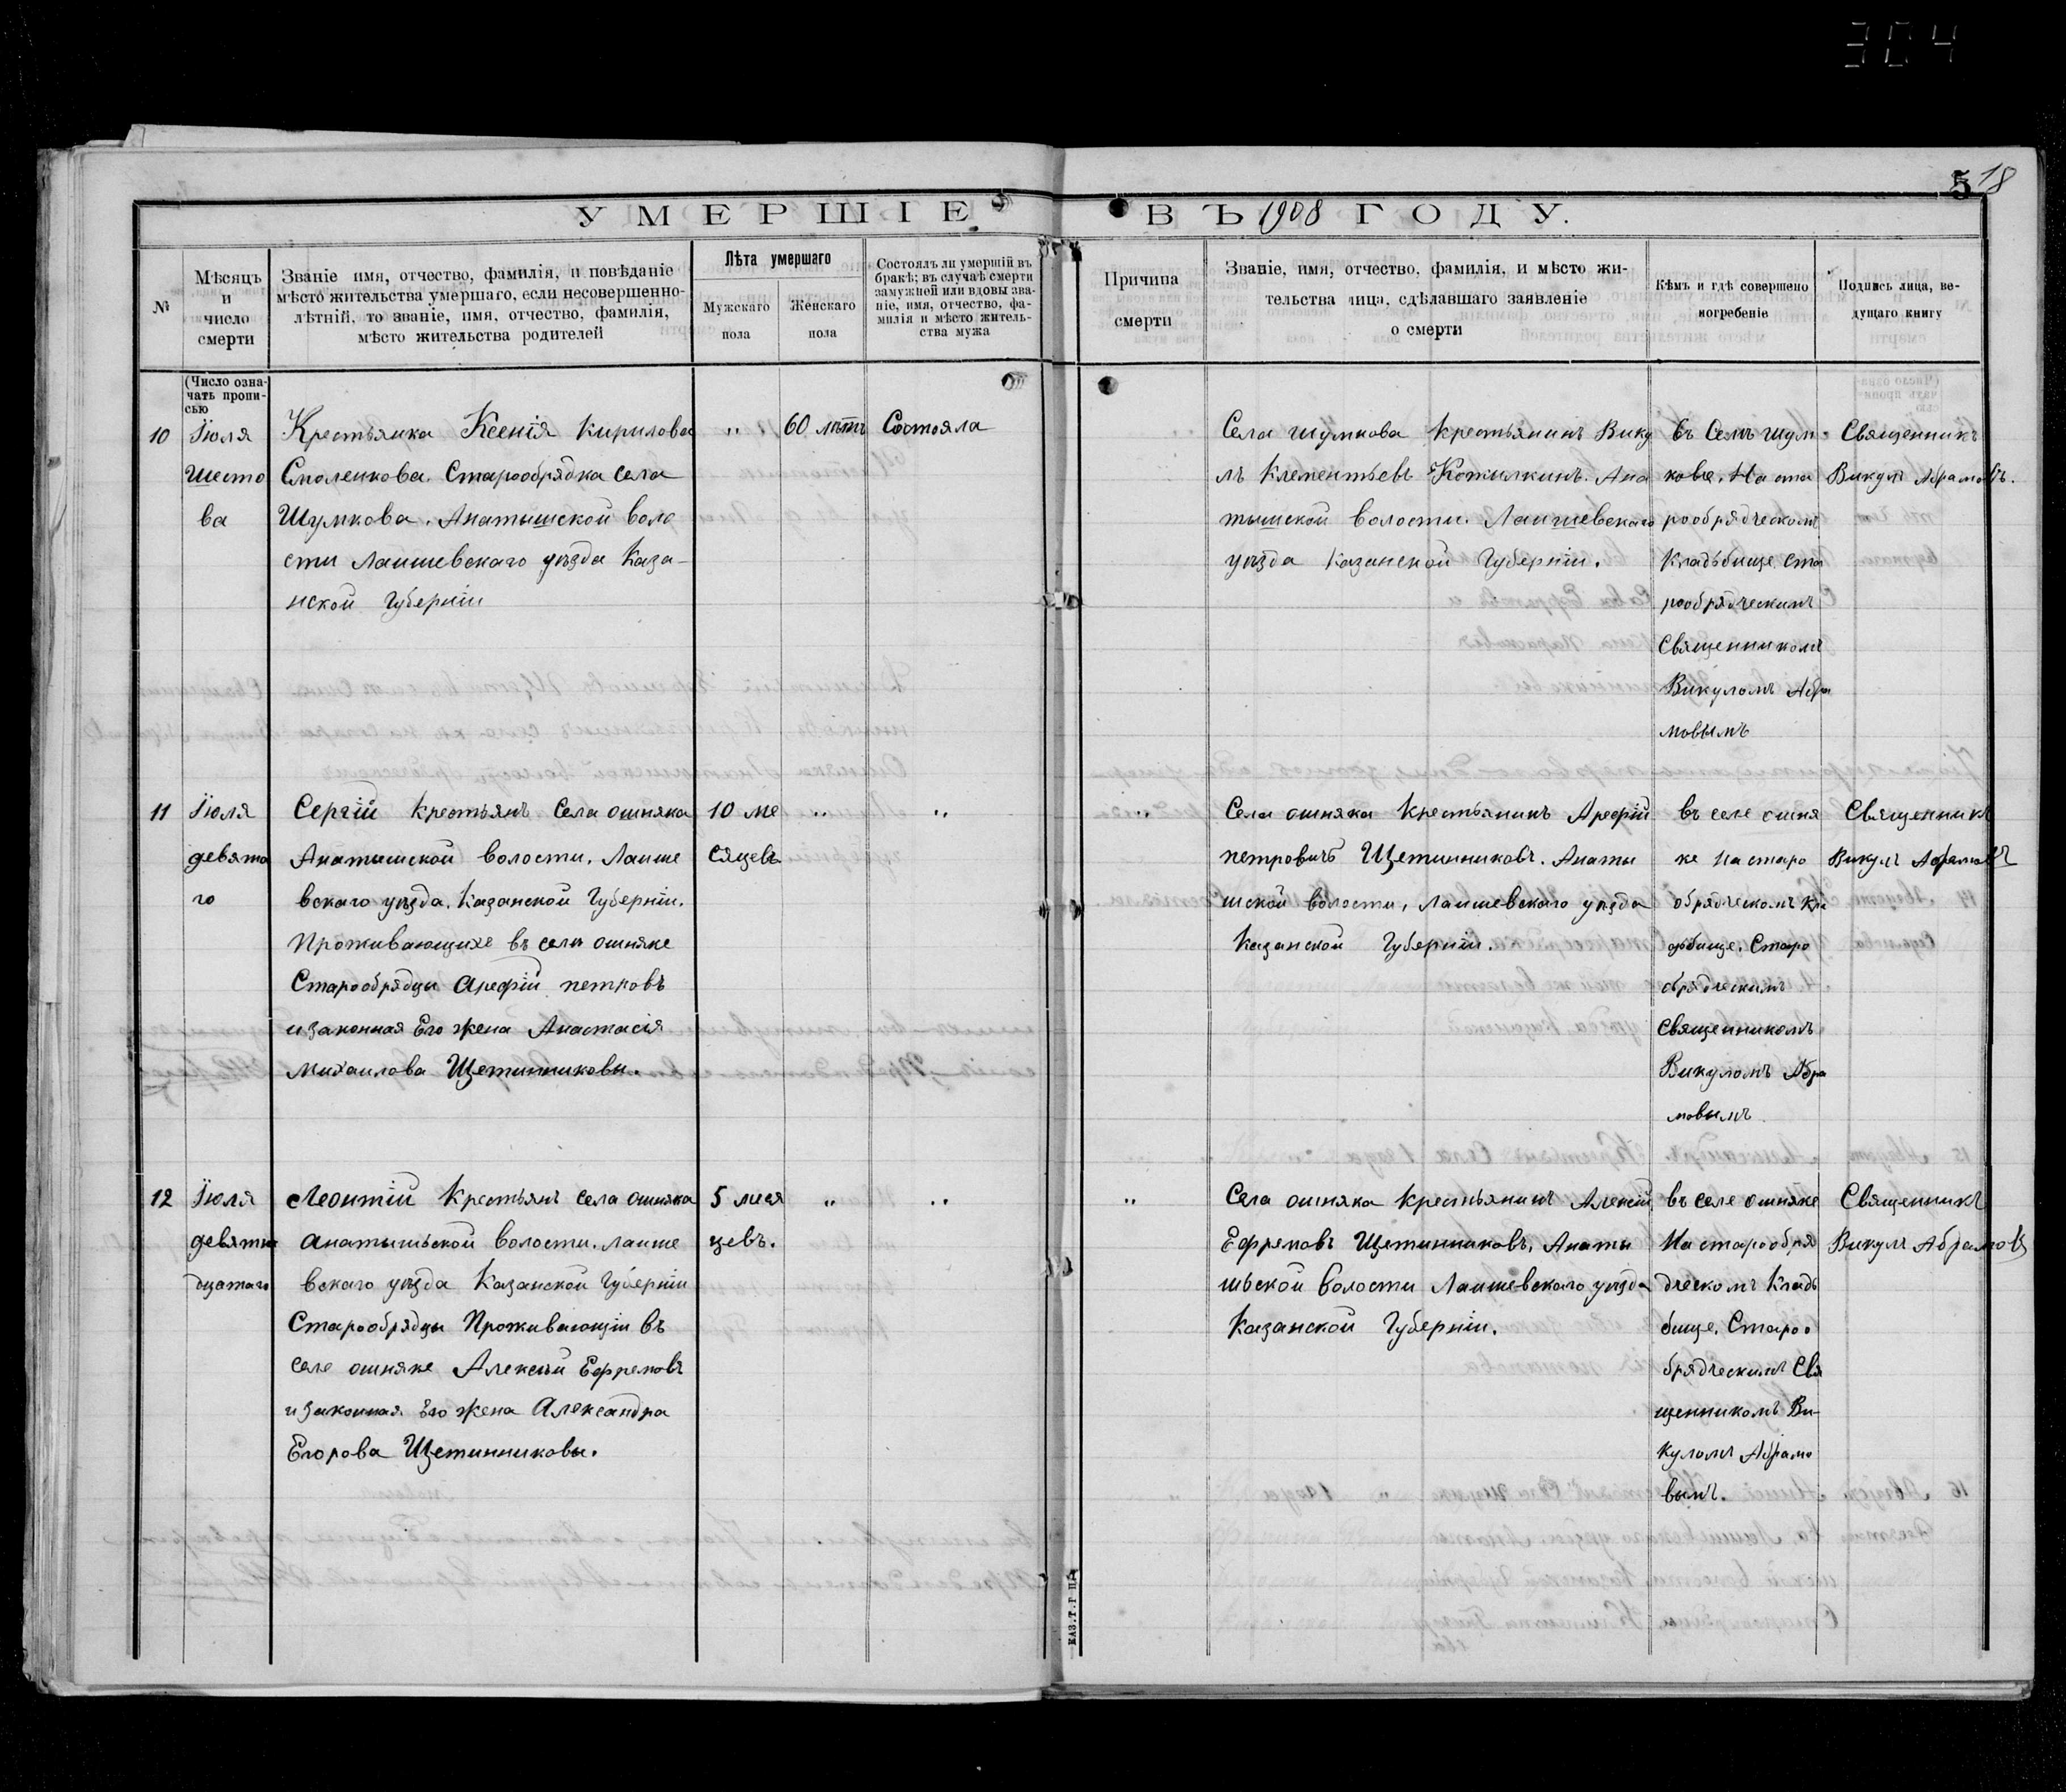 304
5 18
УМЕРШІЕ ВЪ 1908 ГОДУ.
№
Мѣсяцъ
и
число
смерти
Званіе имя, отчество, фамилія, и повѣданіе
мѣсто жительства умершаго, если несовершенно-
лѣтній, то званіе, имя, отчество, фамилія,
мѣсто жительства родителей
Лѣта умершаго
Мужскаго
пола
Женскаго
пола
Состоялъ ли умершій въ
бракѣ; въ случаѣ смерти
замужней или вдовы зва-
ніе, имя, отчество, фа-
милія и мѣсто житель-
ства мужа
Причина
смерти
Званіе, имя, отчество, фамилія, и мѣсто жи-
тельства лица, сдѣлавшаго заявленіе
о смерти
Кѣмъ и гдѣ совершено
погребеніе
Подпись лица, ве-
дущаго книгу
(Число озна-
чать пропи-
сью
10
Іюля
шесто
ва
Крестьянка Ксенія Кирилова
Смоленкова. Старообрядка села
Шумкова. Анатышской воло
сти Лаишевскаго уѣзда Каза-
нской Губерніи
„
60 лѣтъ
Состояла
Села шумкова крестьянинъ Вику
лъ Клементьевъ Котилкинъ. Ана
тышской волости. Лаишевскаго
уѣзда Казанской Губерніи.
въ Селѣ шум-
кове. На ста
рообрядческомъ
Кладьбище Ста
рообрядческимъ
Священникомъ
Викуломъ Абра
мовымъ
Священникъ
Викулъ Абрамовъ.
11
Іюля
девято
го
Сергій крестьянъ Села ошняка
Анатышской волости. Лаише
вскаго уѣзда. Казанской Губерніи.
Проживающихе въ селѣ ошняке
Старообрядцы Арефій петровъ
и законная Его жена Анастасія
Михаилова Щетинниковы.
10 ме
сяцевъ
„
„
„
Села ошняка Крестьянинъ Арефій
петровичъ Щетинниковъ. Анаты
шской волости, Лаишевскаго уѣзда
Казанской Губерніи.
въ селе ошня
ке на старо
обрядческомъ Кла
дьбище. Старо
обрядческимъ
Священникомъ
Викуломъ Абра
мовымъ
Священникъ
Викулъ Абрамовъ
12
Іюля
девятна
дцатаго
Леонтій Крестьянъ села ошняка
Анатышьской волости. лаише
вскаго уѣзда Казанской Губерніи
Старообрядцы Проживающіи въ
селе ошняке Алексѣй Ефремовъ
и законная Его жена Александра
Егорова Щетинниковы.
5 меся
цевъ.
„
„
„
Села ошняка крестьянинъ Алексѣй
Ефремовъ Щетинниковъ, Анаты
шьской волости Лаишевскаго уѣзда
Казанской Губерніи.
въ селе ошняке
На старообря
дческомъ Кладь
бище. Староо
брядческимъ Свя
щенникомъ Ви-
куломъ Абрамо
вымъ.
Священникъ
Викулъ Абрамовъ
КАЗ.Т.Г П